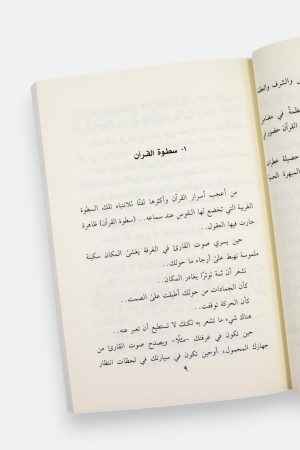 ١- سطوة القرآن
من أعجب أسرار القرآن وأكثرها لفتًا للانتباه تلك السطوة
الغريبة التي تخضع لها النفوس عند سماعه.. (سطوة القرآن) ظاهرة
حارت فيها العقول..
حين يسري صوت القارئ في الغرفة يغشى المكان سكينة
ملموسة تهبط على أرجاء ما حولك..
تشعر أن ثمة توترًا يغادر المكان..
كأن الجمادات من حولك أطبقت على الصمت..
كأن الحركة توقفت..
هناك شيء ما تشعر به لكنك لا تستطيع أن تعبر عنه..
حين تكون في غرفتك -مثلًا- ويصدح صوت القارئ من
جهازك المحمول، أو حين تكون في سيارتك في لحظات انتظار
٩
والشرف والعظ
في مضامين
القرآن حضور
حصيلة
المبهرة